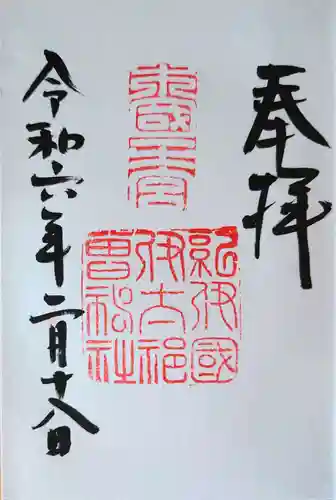 奉拝
紀伊國
伊太祁
曽神社
令和六年二月十八日